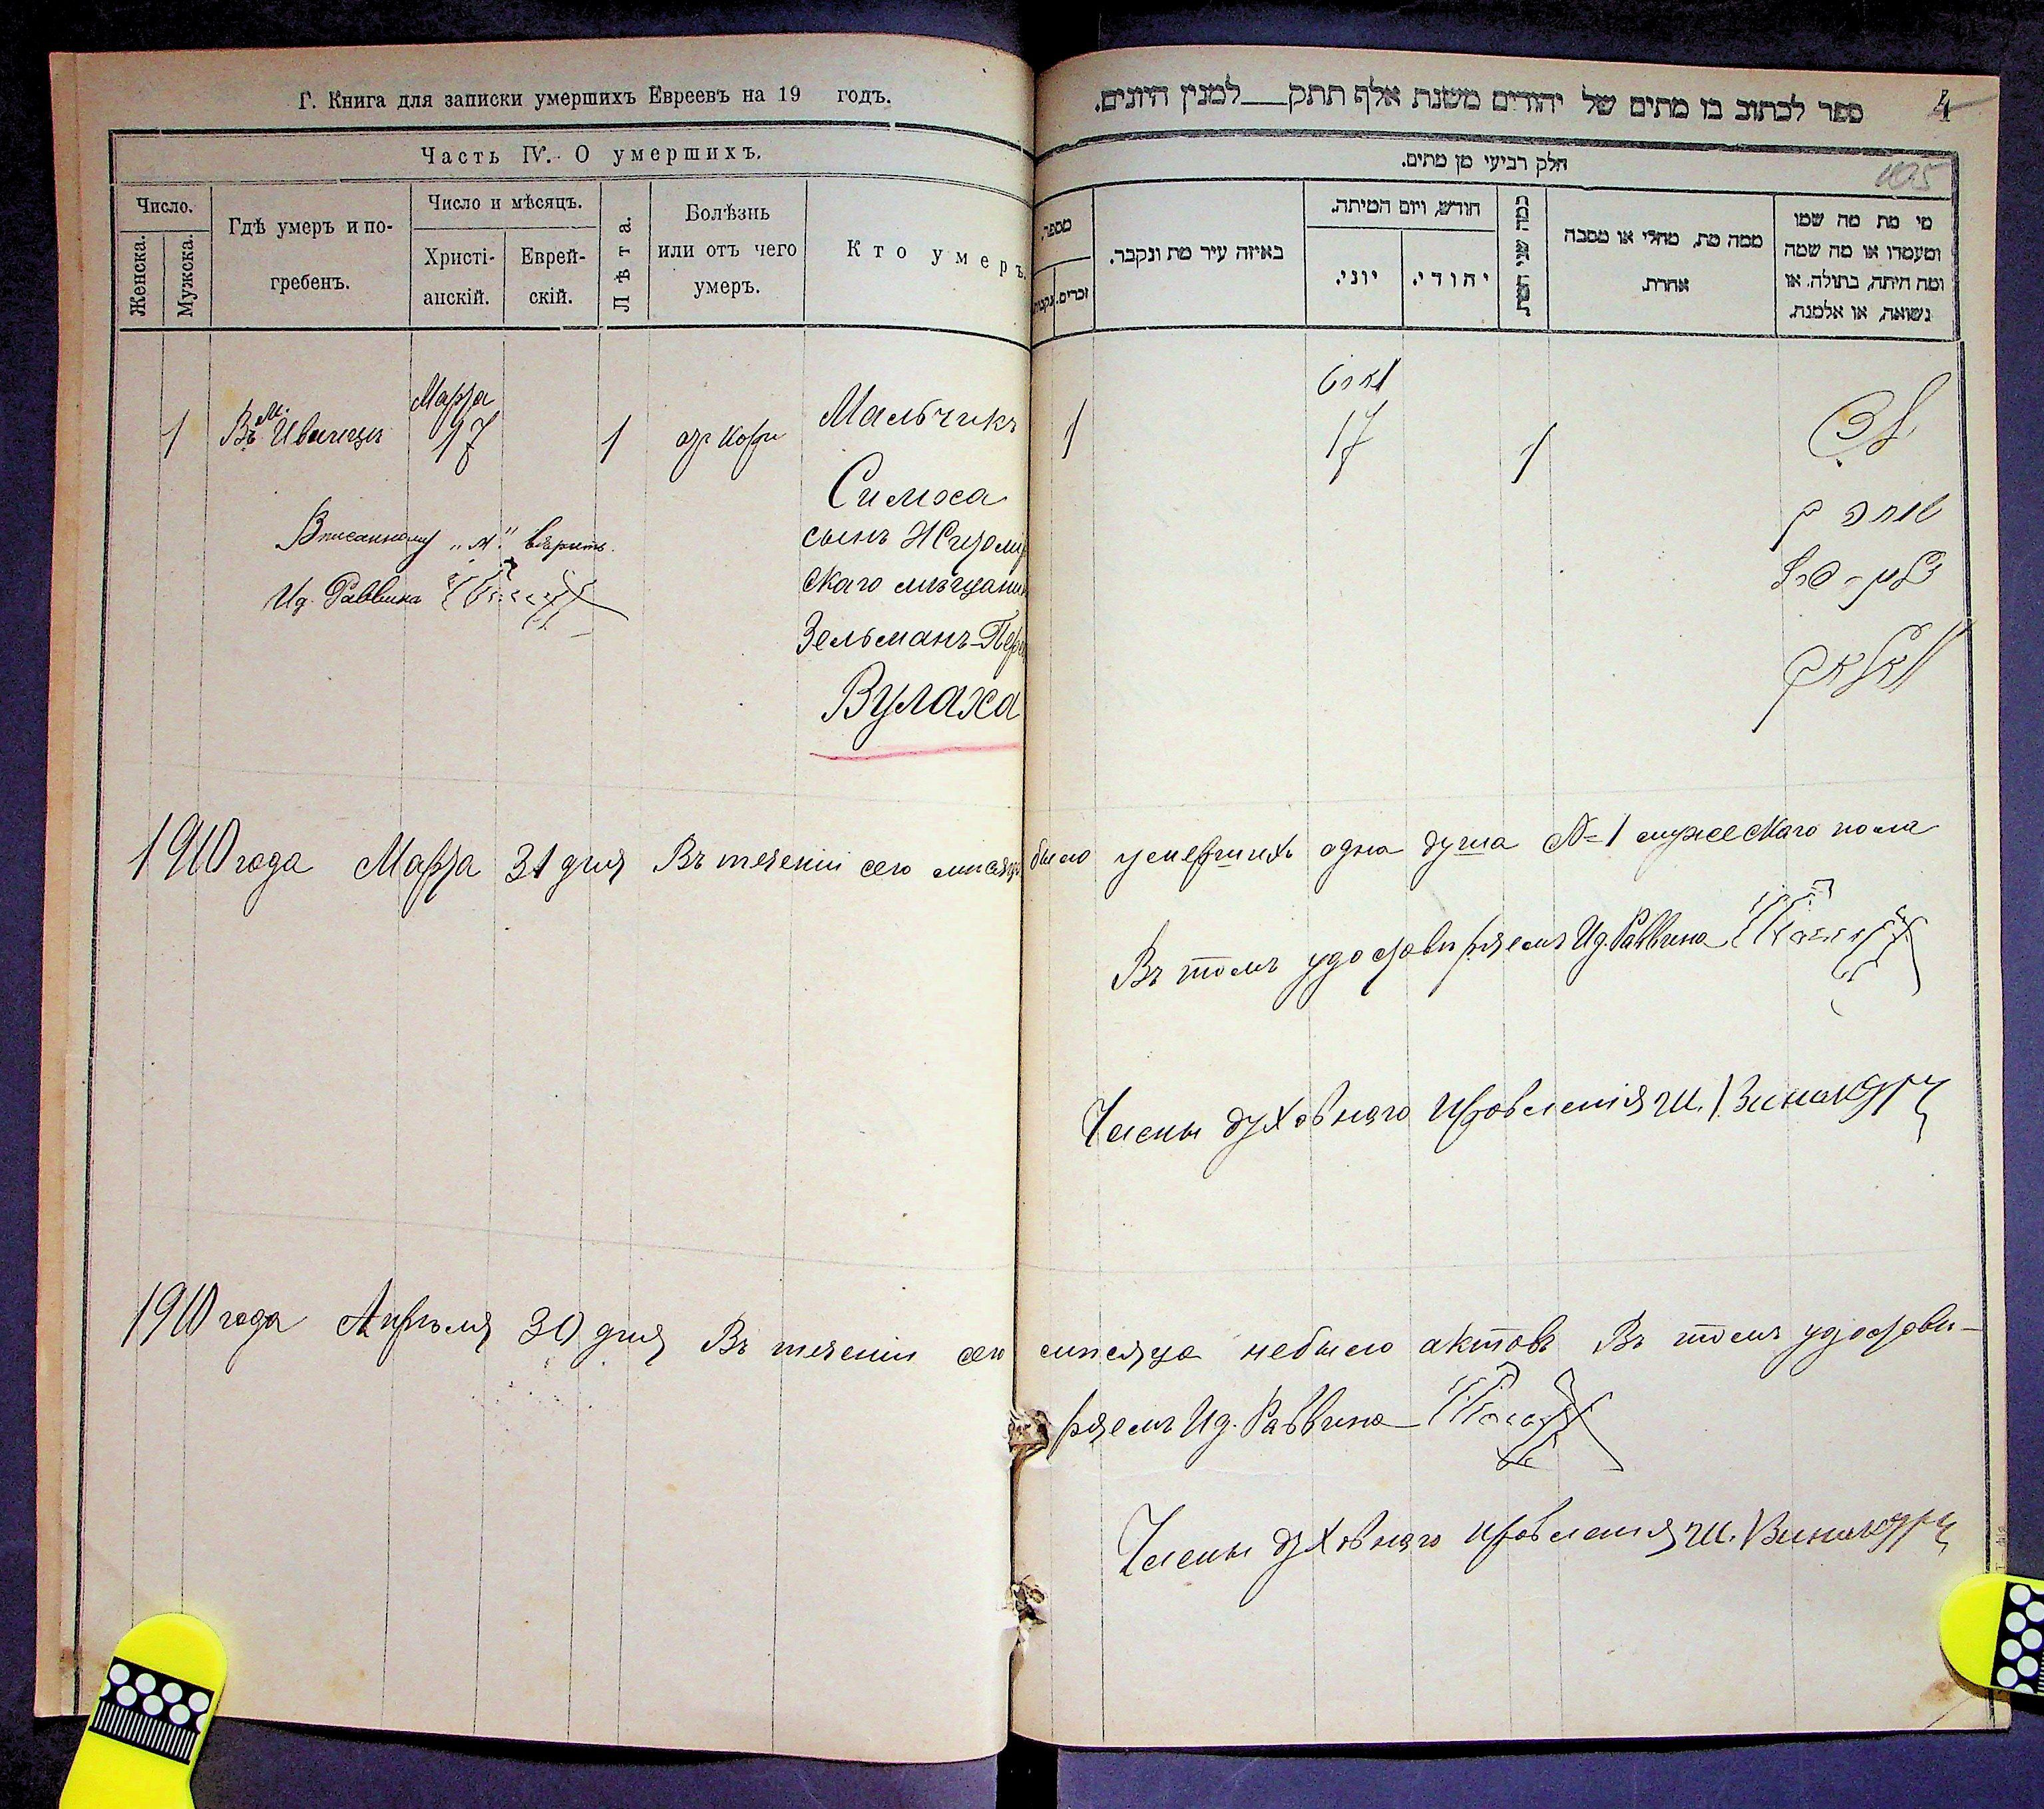 Г. Книга для записки умершихъ Евреевъ на 19 годъ.
Часть IV. О умершихъ.
Число.
Женска.
Мужска.
Гдѣ умеръ и по-
гребенъ.
Число и мѣсяцъ.
Христі-
анскій.
Еврей-
скій.
Лѣта.
Болѣзнь
или отъ чего
умеръ.
Кто умеръ.
Марта
1 Въ м. Ивницѣ 17 1 отъ Кори Мальчикъ
Симха
сынъ Житомир
скаго мѣщанин
Зельманъ-Пер
Вулаха
Вписанному „м." вѣрить.
Ид. Раввина
ספר לכתוב בו מתים של יהודים משנת אלף תתק___למנין היונים.
4
105
חלק רביעי מן מתים.
מספר.
זכרים.
נקבות
באיזה עיר מת ונקבר.
חודש, ויום המיתה.
יוני.
יהודי.
כמה שני המת
ממה מת, מחלי או מסבה
אחרת.
מי מת מה שמו
ומעמדו או מה שמה
ומה היתה, בתולה, או
נשואה, או אלמנה.
מארט
1 17 1
1910 года Марта 31 дня Въ теченіи сего мѣсяца было умершихъ одна душа № 1 мужескаго пола
Въ томъ удостовѣряемъ Ид. Раввина
Члены духовнаго правленія Ш. Винокуръ
1910 года Апрѣля 30 дня Въ теченіи сего мѣсяца небыло актовъ Въ томъ удостовѣ-
ряемъ Ид. Раввина
Члены духовнаго правленія Ш. Винокуръ